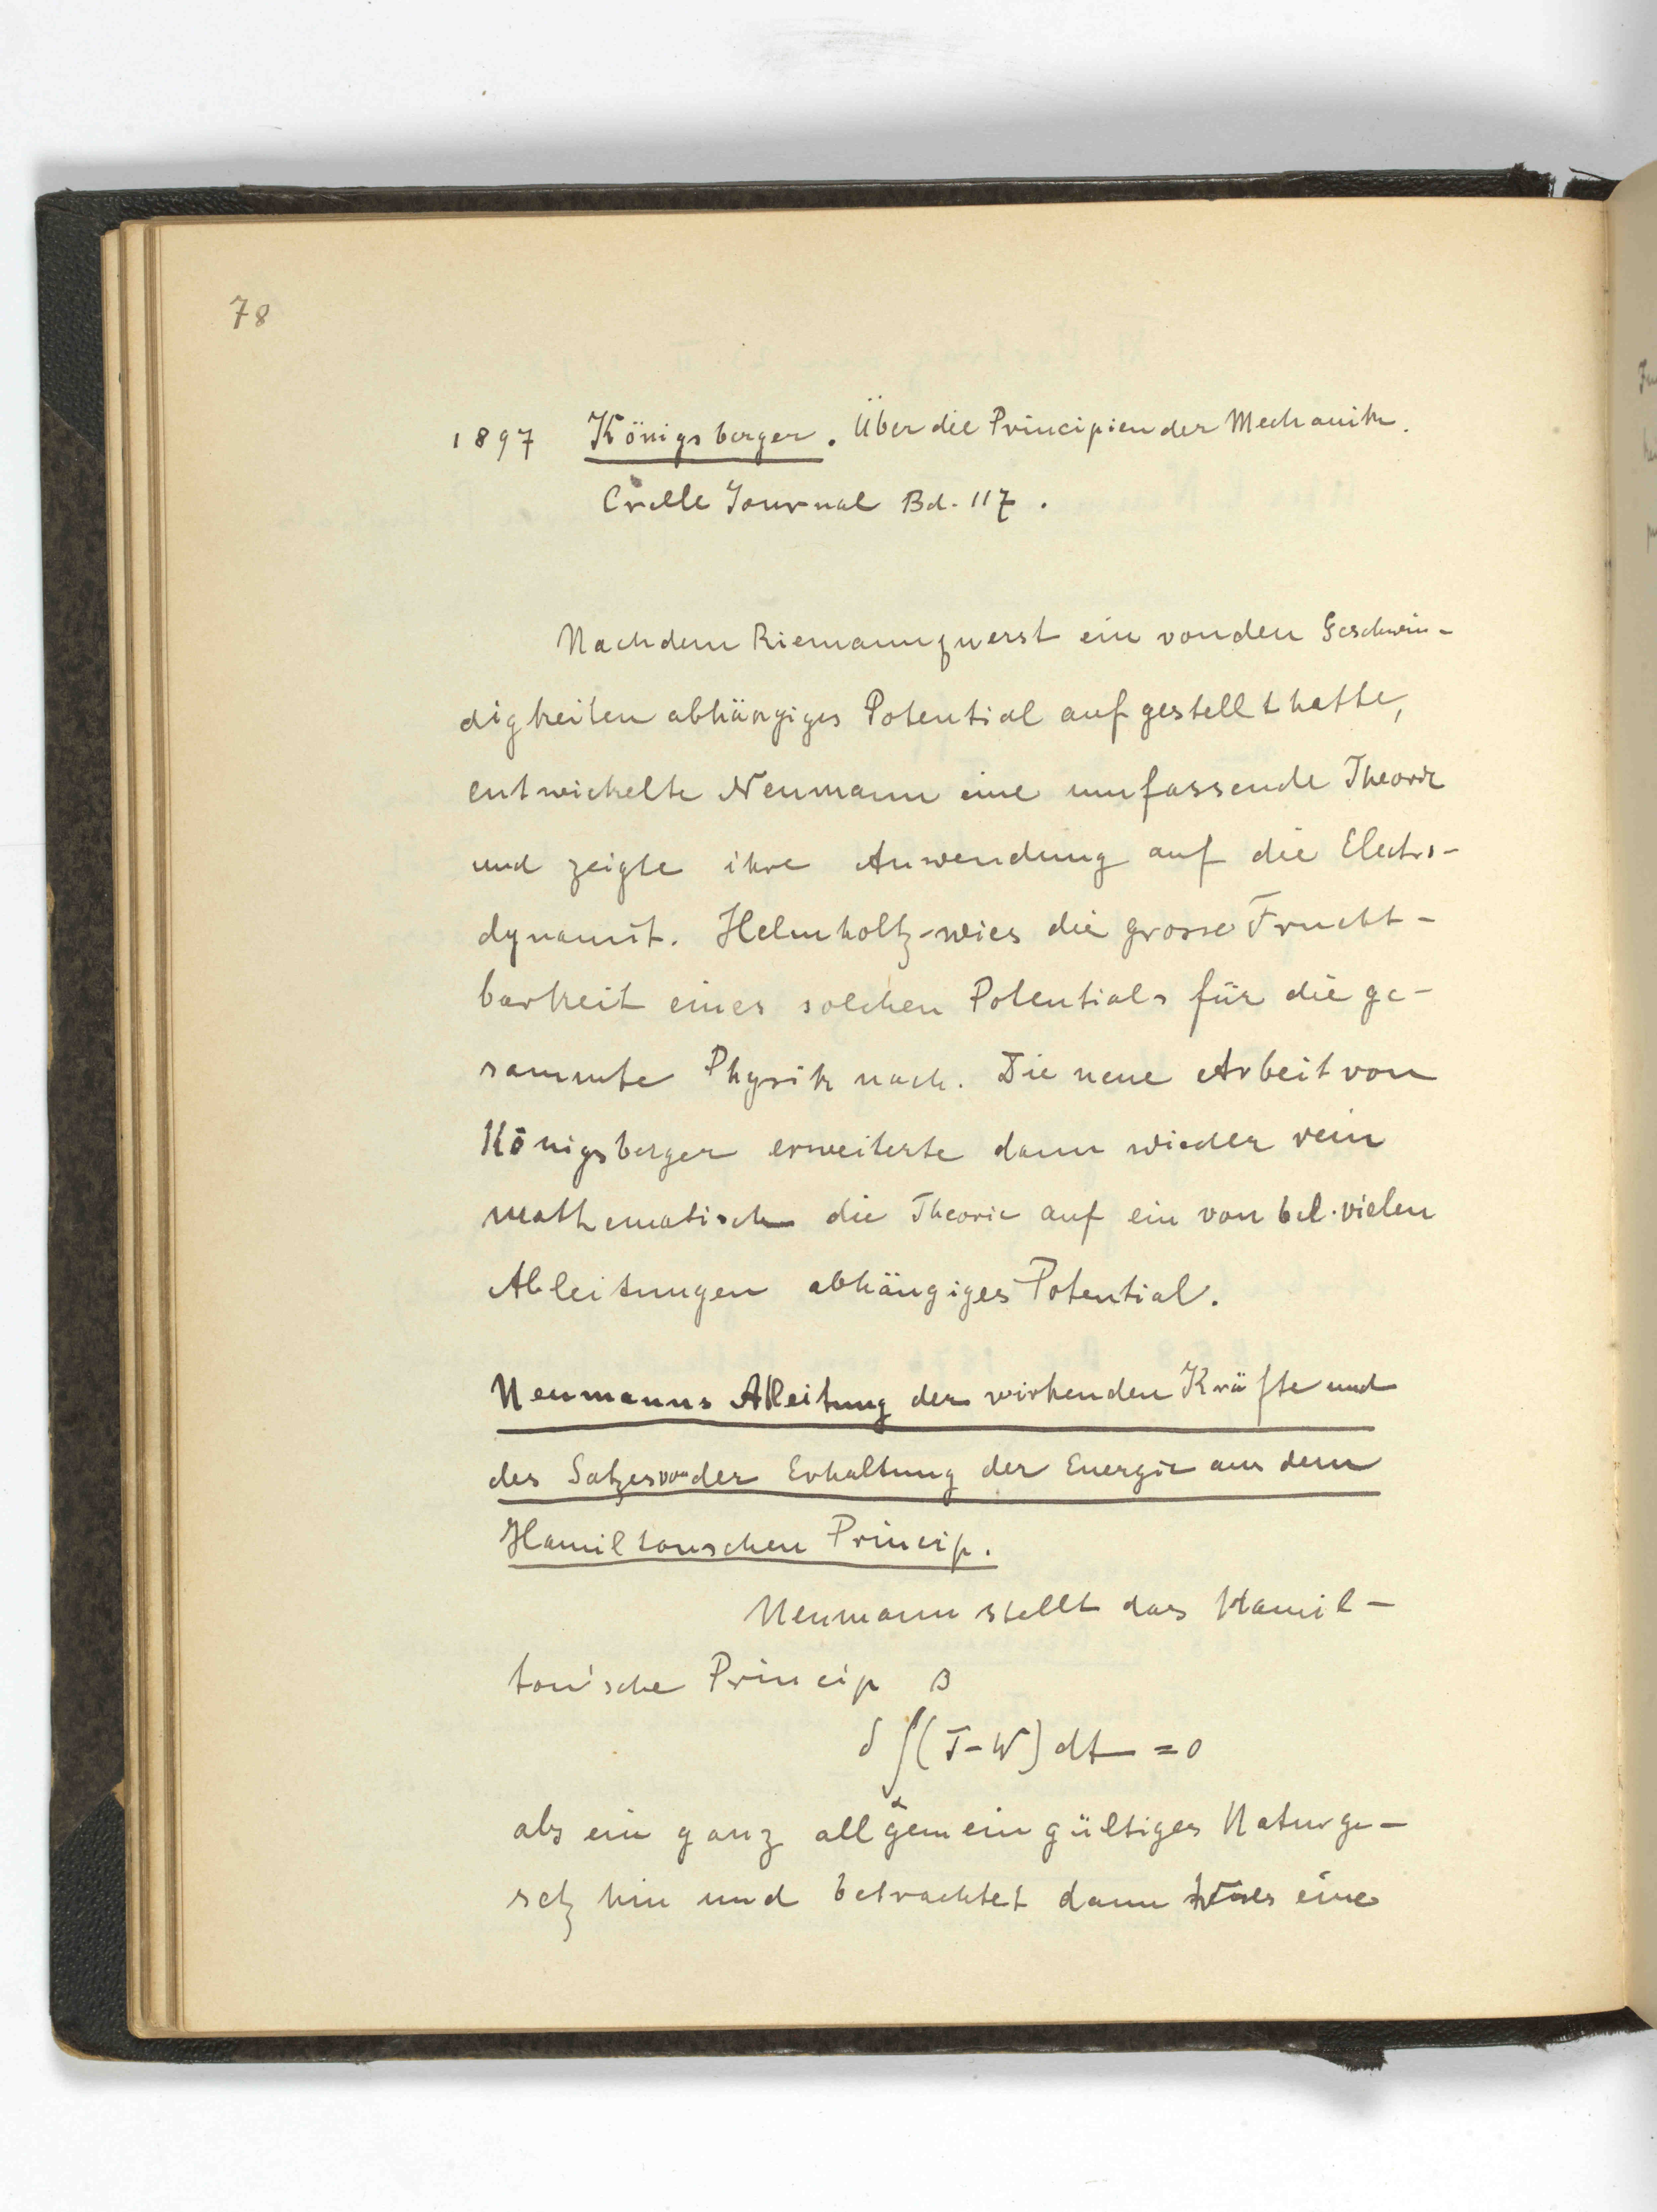 78
1897 Königsberger. Über die Principien der Mechanik.
Crelle Journal Bd. 117.
Nachdem Riemann zuerst ein von den Geschwin-
digkeiten abhängiges Potential aufgestellt hatte,
entwickelte Neumann eine umfassende Theorie
und zeigte ihre Anwendung auf die Electro-
dynamik. Helmholtz wies die grosse Frucht-
barkeit eines solchen Potentials für die ge-
sammte Physik nach. Die neue Arbeit von
Königsberger erweiterte dann wieder rein
mathematisch die Theorie auf ein von bel. vielen
Ableitungen abhängiges Potential.
Neumanns Ableitung der wirkenden Kräfte und
des Satzes von der Erhaltung der Energie aus dem
Hamiltonschen Princip.
Neumann stellt das Hamil-
ton'sche Princip
β
δ∫(T-W)dt = 0
α
als ein ganz allgemein gültiges Naturge-
setz hin und betrachtet dann W als eine